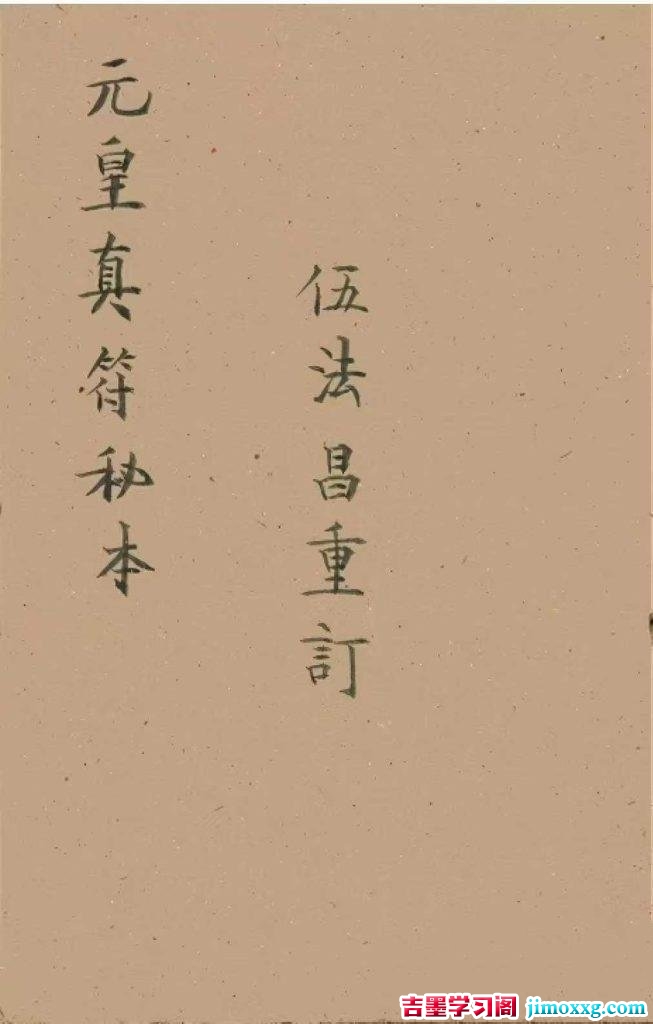 元皇真符秘本
伍法昌重訂
吉墨学习阁 jimoxxg.com